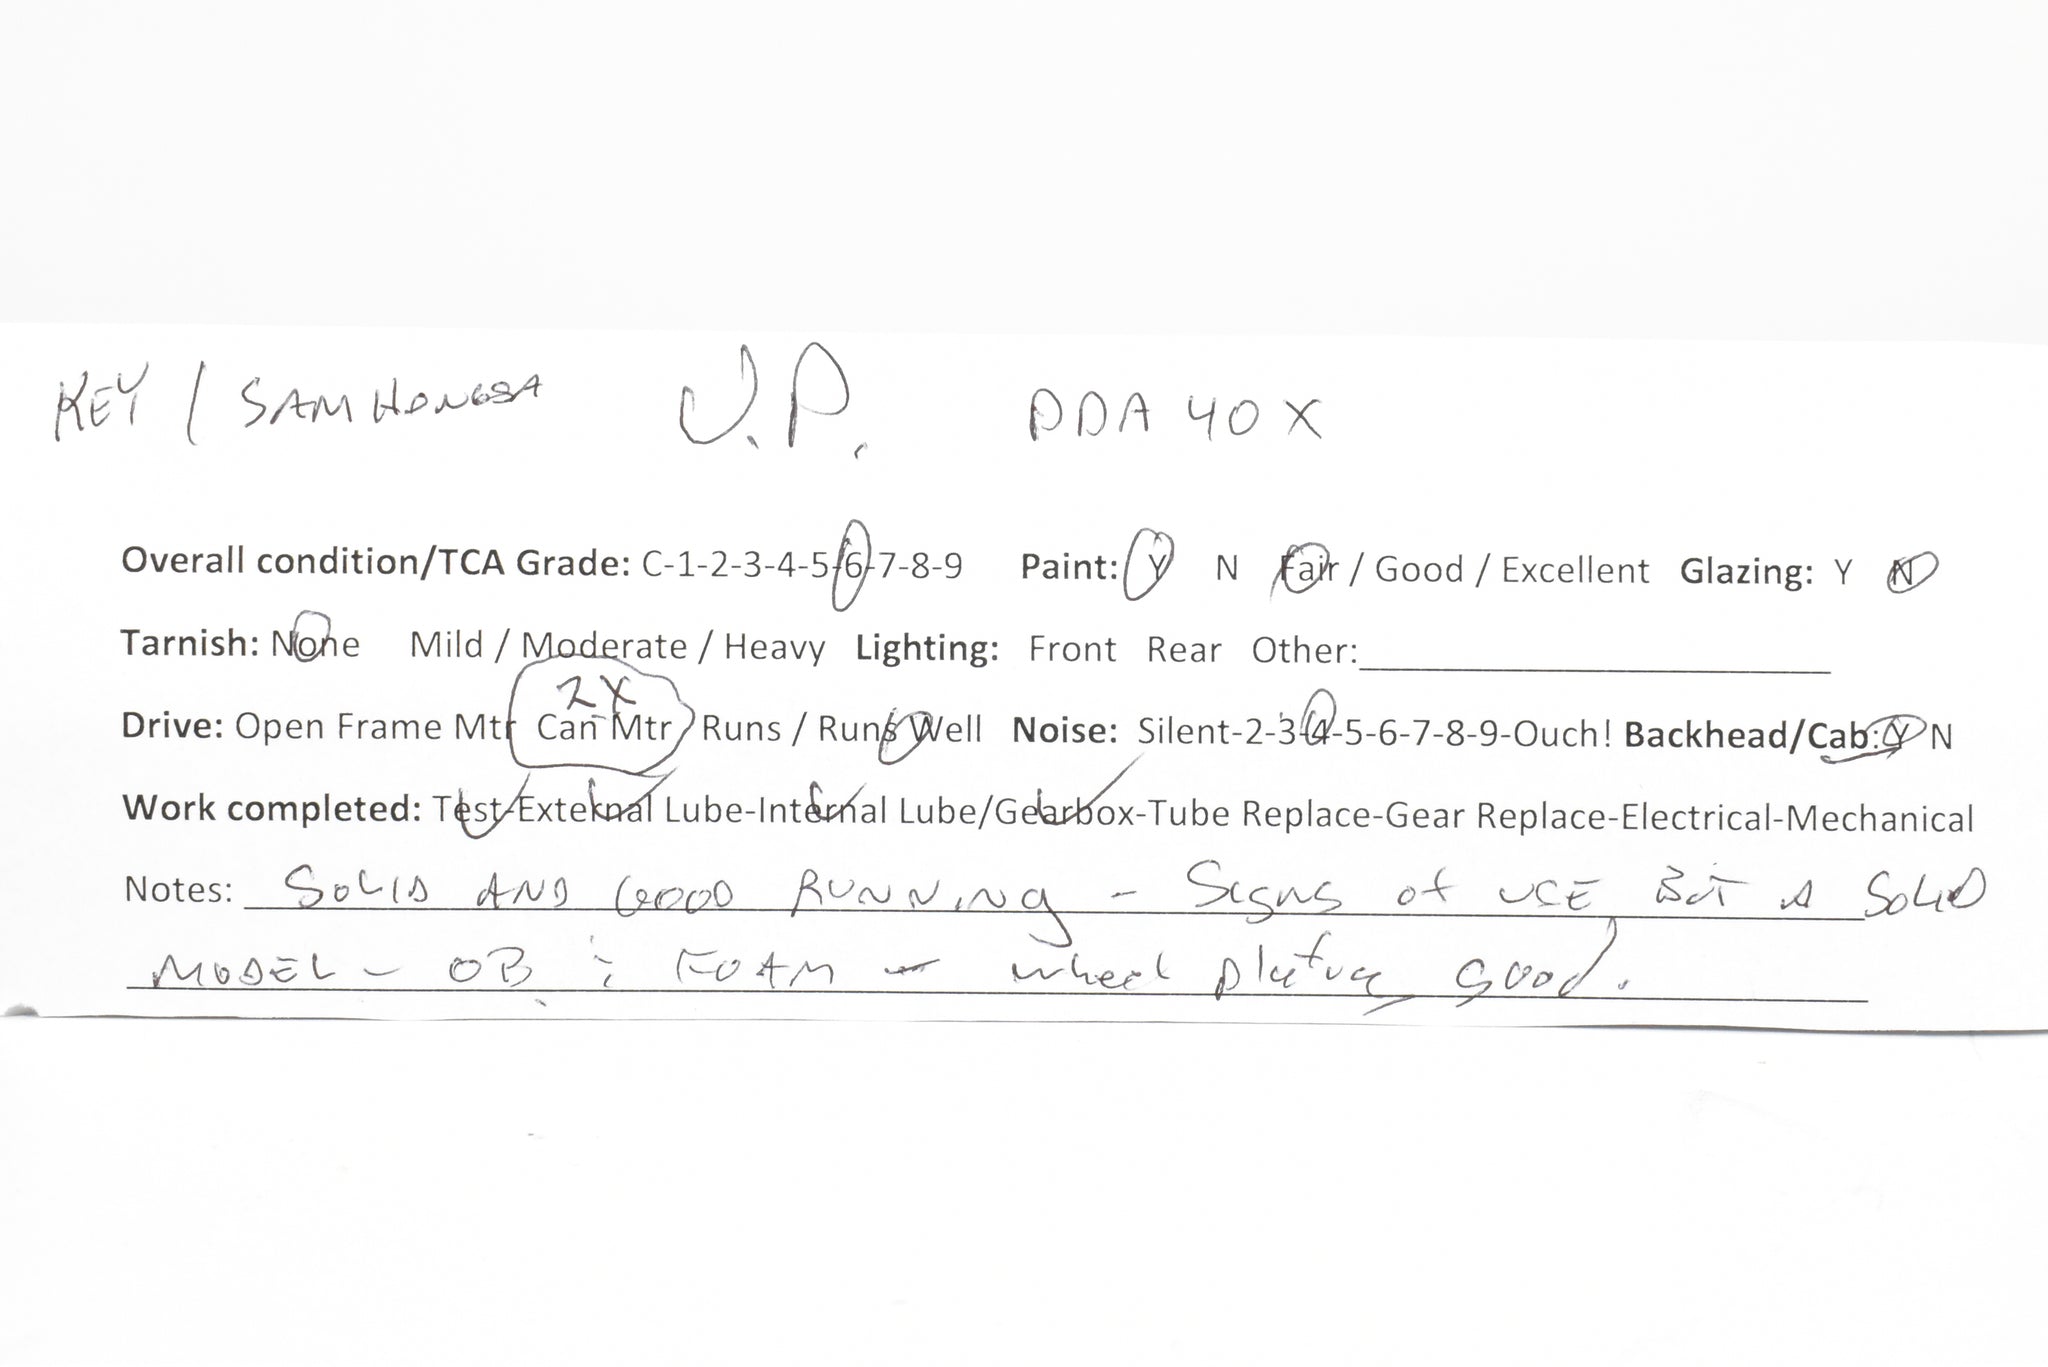 KEY / SAMHONGSA U.P. DDA 40 X
Overall condition/TCA Grade: C-1-2-3-4-5-6-7-8-9 Paint: Y N Fair / Good / Excellent Glazing: Y N
Tarnish: None Mild / Moderate / Heavy Lighting: Front Rear Other:
2X
Drive: Open Frame Mtr Can Mtr Runs / Runs Well Noise: Silent-2-3-4-5-6-7-8-9-Ouch! Backhead/Cab: Y N
Work completed: Test-External Lube-Internal Lube/Gearbox-Tube Replace-Gear Replace-Electrical-Mechanical
Notes: SOLID AND GOOD RUNNING - SIGNS OF USE BUT A SOLID
MODEL - OB & FOAM - wheel plating good.